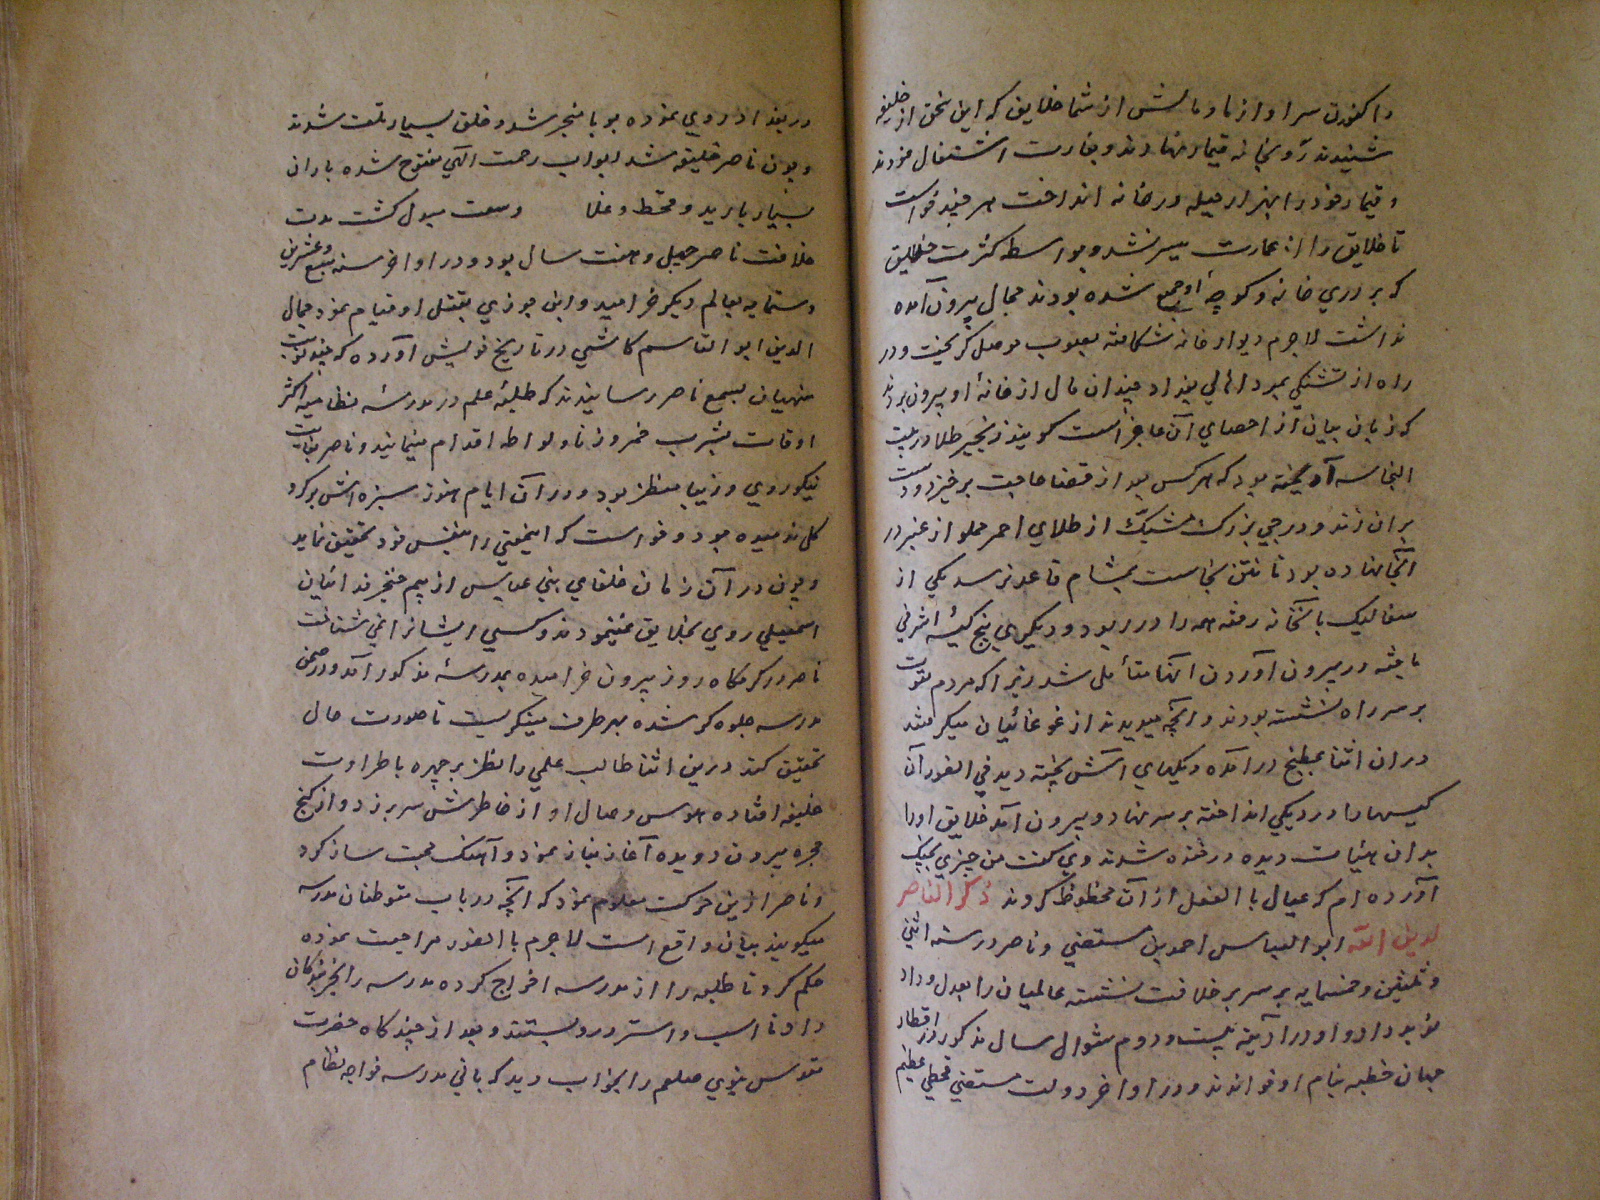 و اکنون سرا و از ما و مالش از شما خلایق که این سخن از خلیفه
شنیدند رو بخانه قیماز نهادند و بغارت اشتغال نمودند
و قیماز خود را بهزار حیله در خانه انداخت هر چند خواست
تا خلایق را از غارت میسر نشد و بواسطه کثرت خلایق
که بر در خانه و کوچه او جمع شده بودند مجال بیرون آمدن
نداشت لاجرم دیوار خانه شکافته بصوب موصل گریخت و در
راه از تشنگی بمرد اهالی بغداد چندان مال از خانه او بیرون بردند
که زبان بیان از احصای آن عاجز است گویند زنجیر طلا در بیت
النجاسه آویخته بود که هر کس بعد از قضا حاجت برخیزد دست
بران زند و درجی بزرگ مشبک از طلای احمر مملو از عنبر در
آنجا نهاده بود تا نتن نجاست بمشام قاعد نرسد یکی از
صعالیک بآنخانه رفته همه را در ربود و دیگری پنج کیسه اشرفی
یافته در بیرون آوردن آنها متأمل شد زیرا که مردم بقوت
بر سر راه نشسته بودند و آنچه میدیدند از غوغائیان میگرفتند
در آن اثنا بمطبخ درآمده دیگهای آش پخته دید فی الفور آن
کیسها را در دیگی انداخته بر سر نهاد و بیرون آمد خلایق او را
بدان هیأت دیده در خنده شدند وی گفت من چیزی بجهت
آورده ام که عیال بالفعل از آن محظوظ گردند ذکر الناصر
لدین الله ابو العباس احمد بن مستضی و ناصر در سنه اثنی
و ثلثین و خمسمایه بر سریر خلافت نشسته عالمیان را بعدل و داد
نوید داد و او در آدینه بیست و دوم شوال سال مذکور در اقطار
جهان خطبه بنام او خواندند و در اواخر دولت مستضی قحطی عظیم
در بغداد روی نموده بوبا منجر شد و خلق بسیار تلف شدند
و چون ناصر خلیفه شد ابواب رحمت الهی مفتوح شده باران
بسیار بارید و قحط و غلا وسعت مبدل گشت مدت
خلافت ناصر چهل و هفت سال بود و در اواخر سنه سبع و عشرین
و ستمایه بعالم دیگر خرامید و ابن جوزی بغسل او قیام نمود جمال
الدین ابو القاسم کاشی در تاریخ خویش آورده که چند نوبت
منهیان بسمع ناصر رسانیدند که طلبه علم در مدرسه نظامیه اکثر
اوقات بشرب خمر و زنا و لواطه اقدام مینمایند و ناصر بغایت
نیکوروی و زیبا منظر بود و در آن ایام هنوز سبزه اش بر گرد
گل ندمیده بود و خواست که اینمعنی را بنفس خود تحقیق نماید
و چون در آن زمان خلفای بنی عباس از بیم خنجر فدائیان
اسمعیلی روی بخلایق نمینمودند و کسی ایشانرا نمی شناخت
ناصر در گرمگاه روز بیرون خرامیده بمدرسه مذکور آمد و در صحن
مدرسه جلوه گر شده بهر طرف مینگریست تا صورت حال
تحقیق کند درین اثنا طالب علمی را نظر بر چهره با طراوت
خلیفه افتاده هوس وصال او از خاطرش سر بر زد و از کنج
حجره بیرون دویده آغاز نیاز نمود و آهنگ محبت ساز کرد
و ناصر ازین حرکت معلوم نمود که آنچه در باب متوطنان مدرسه
میگویند بیان واقع است لاجرم بالفور مراجعت نموده
حکم کرد تا طلبه را از مدرسه اخراج کرده مدرسه را بخربندگان
داد تا اسب و استر در و بستند و بعد از چندگاه حضرت
مقدس نبوی صلعم را بخواب دید که بانی مدرسه خواجه نظام